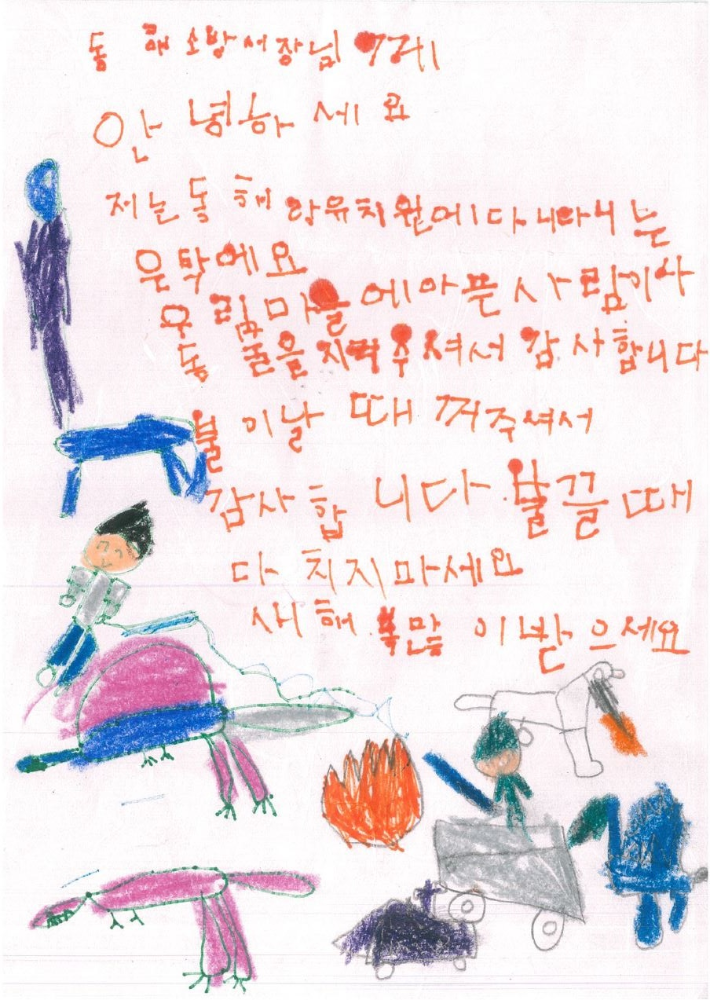 동해소방서장님께
안녕하세요
저는 동해 양유치원에 다니라니 는
은탁에요
우림마을에아픈사람이나
동굴을 지켜주셔서 감사합니다
불이날 때 꺼주셔서
감사합니다 불끌때
다치지마세요
새해 복많이받으세요